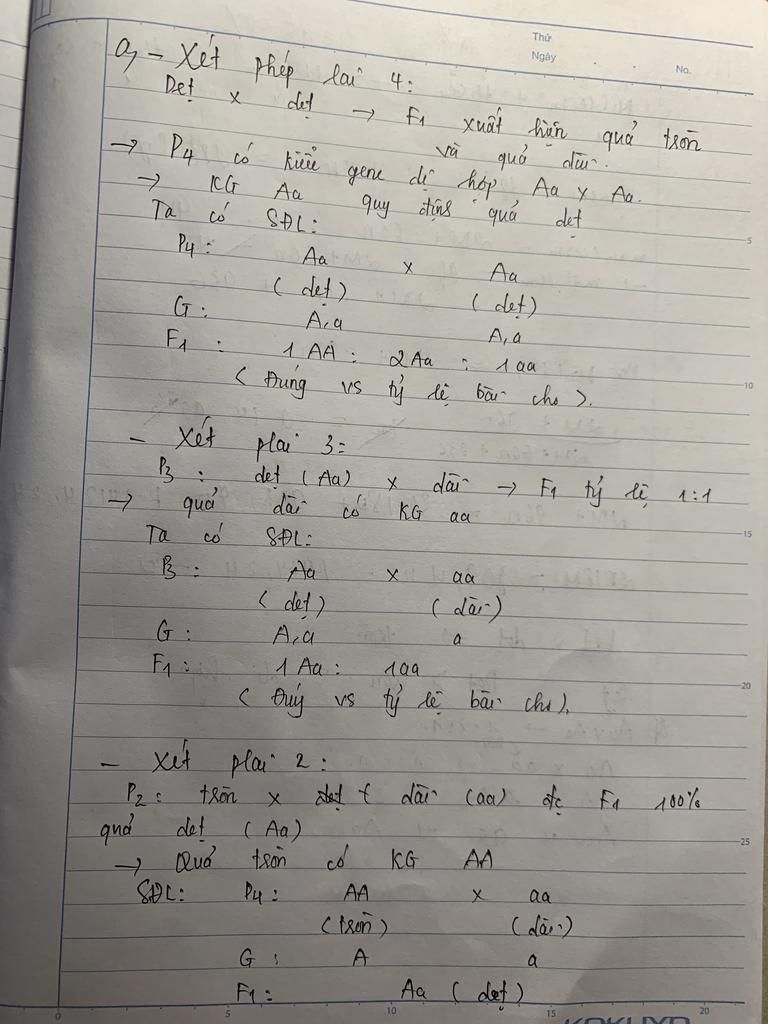 Thứ
Ngày
No.
a, - Xét phép lai 4:
Dẹt x dẹt → F1 xuất hiện quả tròn
và quả dài.
→ P4 có kiểu gene dị hợp Aa x Aa.
→ KG Aa quy định quả dẹt
Ta có SĐL:
P4: Aa x Aa
(dẹt) (dẹt)
G: A,a A,a
F1: 1 AA : 2Aa : 1aa
(Đúng vs tỷ lệ bài cho).
- Xét plai 3:
P3: dẹt (Aa) x dài → F1 tỷ lệ 1:1
→ quả dài có KG aa
Ta có SĐL:
P3: Aa x aa
(dẹt) (dài)
G: A,a a
F1: 1 Aa : 1aa
(Đúng vs tỷ lệ bài cho).
- Xét plai 2:
P2: tròn x dài (aa) đc F1 100%
quả dẹt (Aa)
→ Quả tròn có KG AA
SĐL: P4: AA x aa
(tròn) (dài)
G: A a
F1: Aa (dẹt)
5
10
15
20
25
0 5 10 15 20
KOKUYO